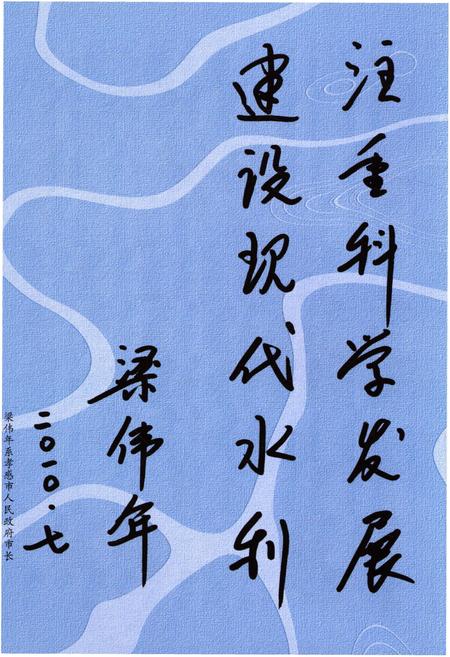 注重科学发展
建设现代水利
梁伟年
二〇一〇·七
梁伟年系孝感市人民政府市长